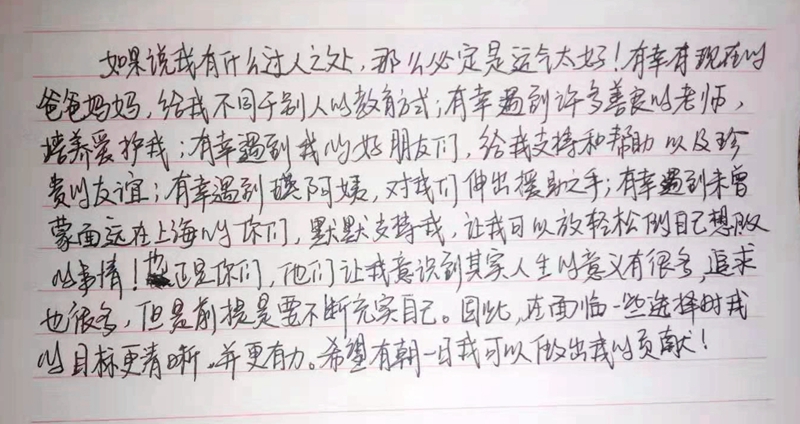 如果说我有什么过人之处，那么必定是运气太好！有幸有现在的
爸爸妈妈，给我不同于别人的教育方式；有幸遇到许多善良的老师，
培养爱护我；有幸遇到我的好朋友们，给我支持和帮助以及珍
贵的友谊；有幸遇到瑛阿姨，对我们伸出援助之手；有幸遇到未曾
蒙面远在上海的你们，默默支持我，让我可以放轻松做自己想做
的事情！也正是你们，他们让我意识到其实人生的意义有很多，追求
也很多，但是前提是要不断充实自己。因此，在面临一些选择时我
的目标更清晰，并更有力。希望有朝一日我可以做出我的贡献！